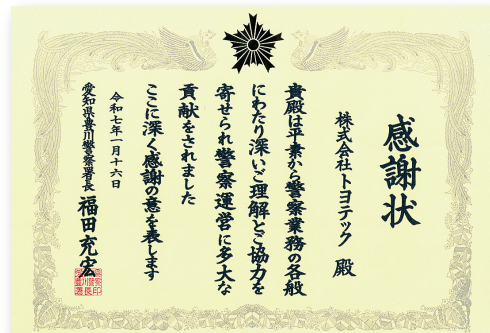 感謝状
株式会社トヨテック 殿
貴殿は平素から警察業務の各般
にわたり深いご理解とご協力を
寄せられ警察運営に多大な
貢献をされました
ここに深く感謝の意を表します
令和七年一月十六日
愛知県豊川警察署長 福田充宏